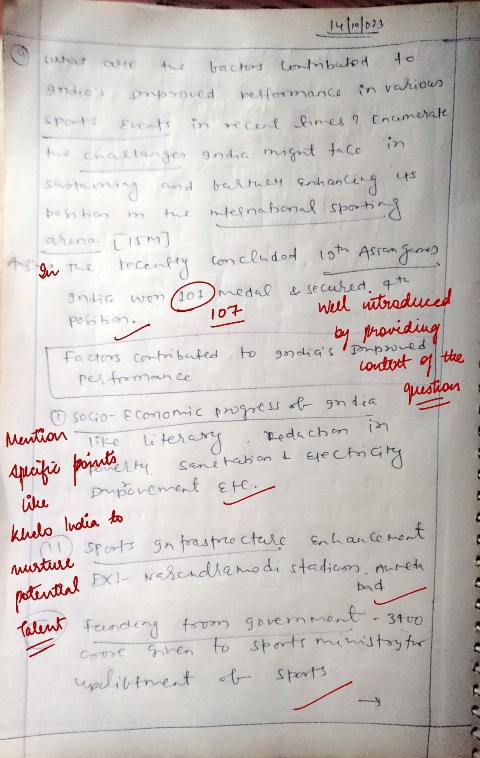 14/10/023
What are the factors contributed to
India's improved performance in various
sports events in recent times? Enumerate
the challanges India might face in
sustaining and further enhancing its
position in the international sporting
arena. [15M]
Ans:- In the recently concluded 19th Asian games
India won 107 medal & secured 4th
position.
107
Well introduced
by providing
context of the
question
Factors contributed to India's improved
performance
(i) Socio-Economic progress of India
like literary, reduction in
poverty, sanitation & electricity
improvement etc.
Mention
specific points
like
Khelo India to
nurture
potential
Talent
(ii) Sports Infrastructure enhancement
EX:- Narendramodi stadium,
bad
Funding from government - 3400
crore given to sports ministry for
upliftment of sports